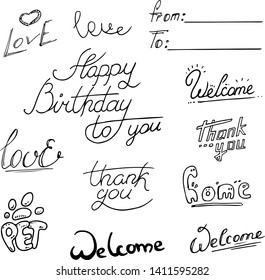 LOVE
love
from:
To:
Happy
Birthday
to you
Welcome
thank
...you
love
thank
you
home
PET
Welcome
Welcome
shutterstock.com · 1411595282